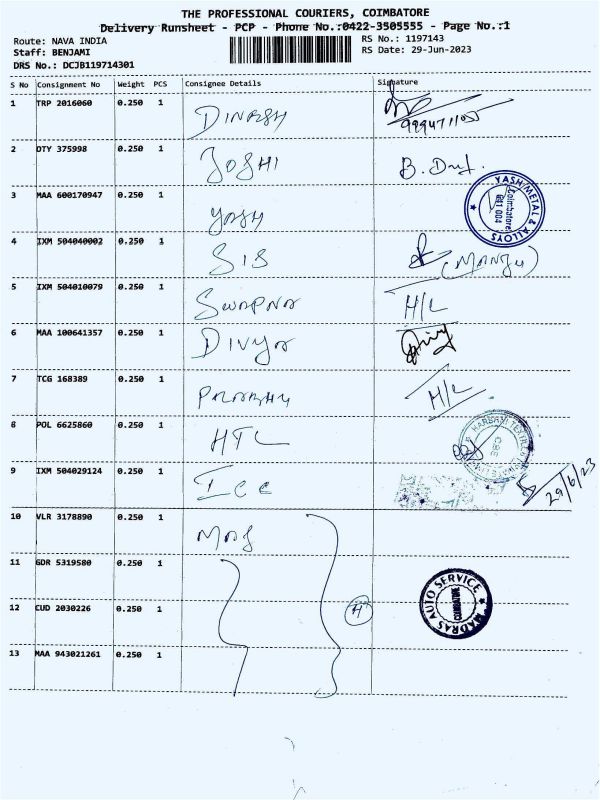 THE PROFESSIONAL COURIERS, COIMBATORE
Delivery Runsheet - PCP - Phone No.:0422-3505555 - Page No.:1
Route: NAVA INDIA
RS No.: 1197143
Staff: BENJAMI
RS Date: 29-Jun-2023
DRS No.: DCJB119714301
S No Consignment No Weight PCS Consignee Details Signature
1 TRP 2016060 0.250 1 DINESH
2 DTY 375998 0.250 1 JOSHI
3 MAA 600170947 0.250 1 YASH YASH METAL & ALLOYS Coimbatore 641 004
4 IXM 504040002 0.250 1 SIS (MANJU)
5 IXM 504010079 0.250 1 SWAPNA H/L
6 MAA 100641357 0.250 1 DIVYA
7 TCG 168389 0.250 1 PRABHU H/L
8 POL 6625860 0.250 1 HTL CBE
9 IXM 504029124 0.250 1 ICC 29/6/23
10 VLR 3178890 0.250 1 MAS
11 GDR 5319580 0.250 1
12 CUD 2030226 0.250 1 4 MADRAS AUTO SERVICE COIMBATORE
13 MAA 943021261 0.250 1